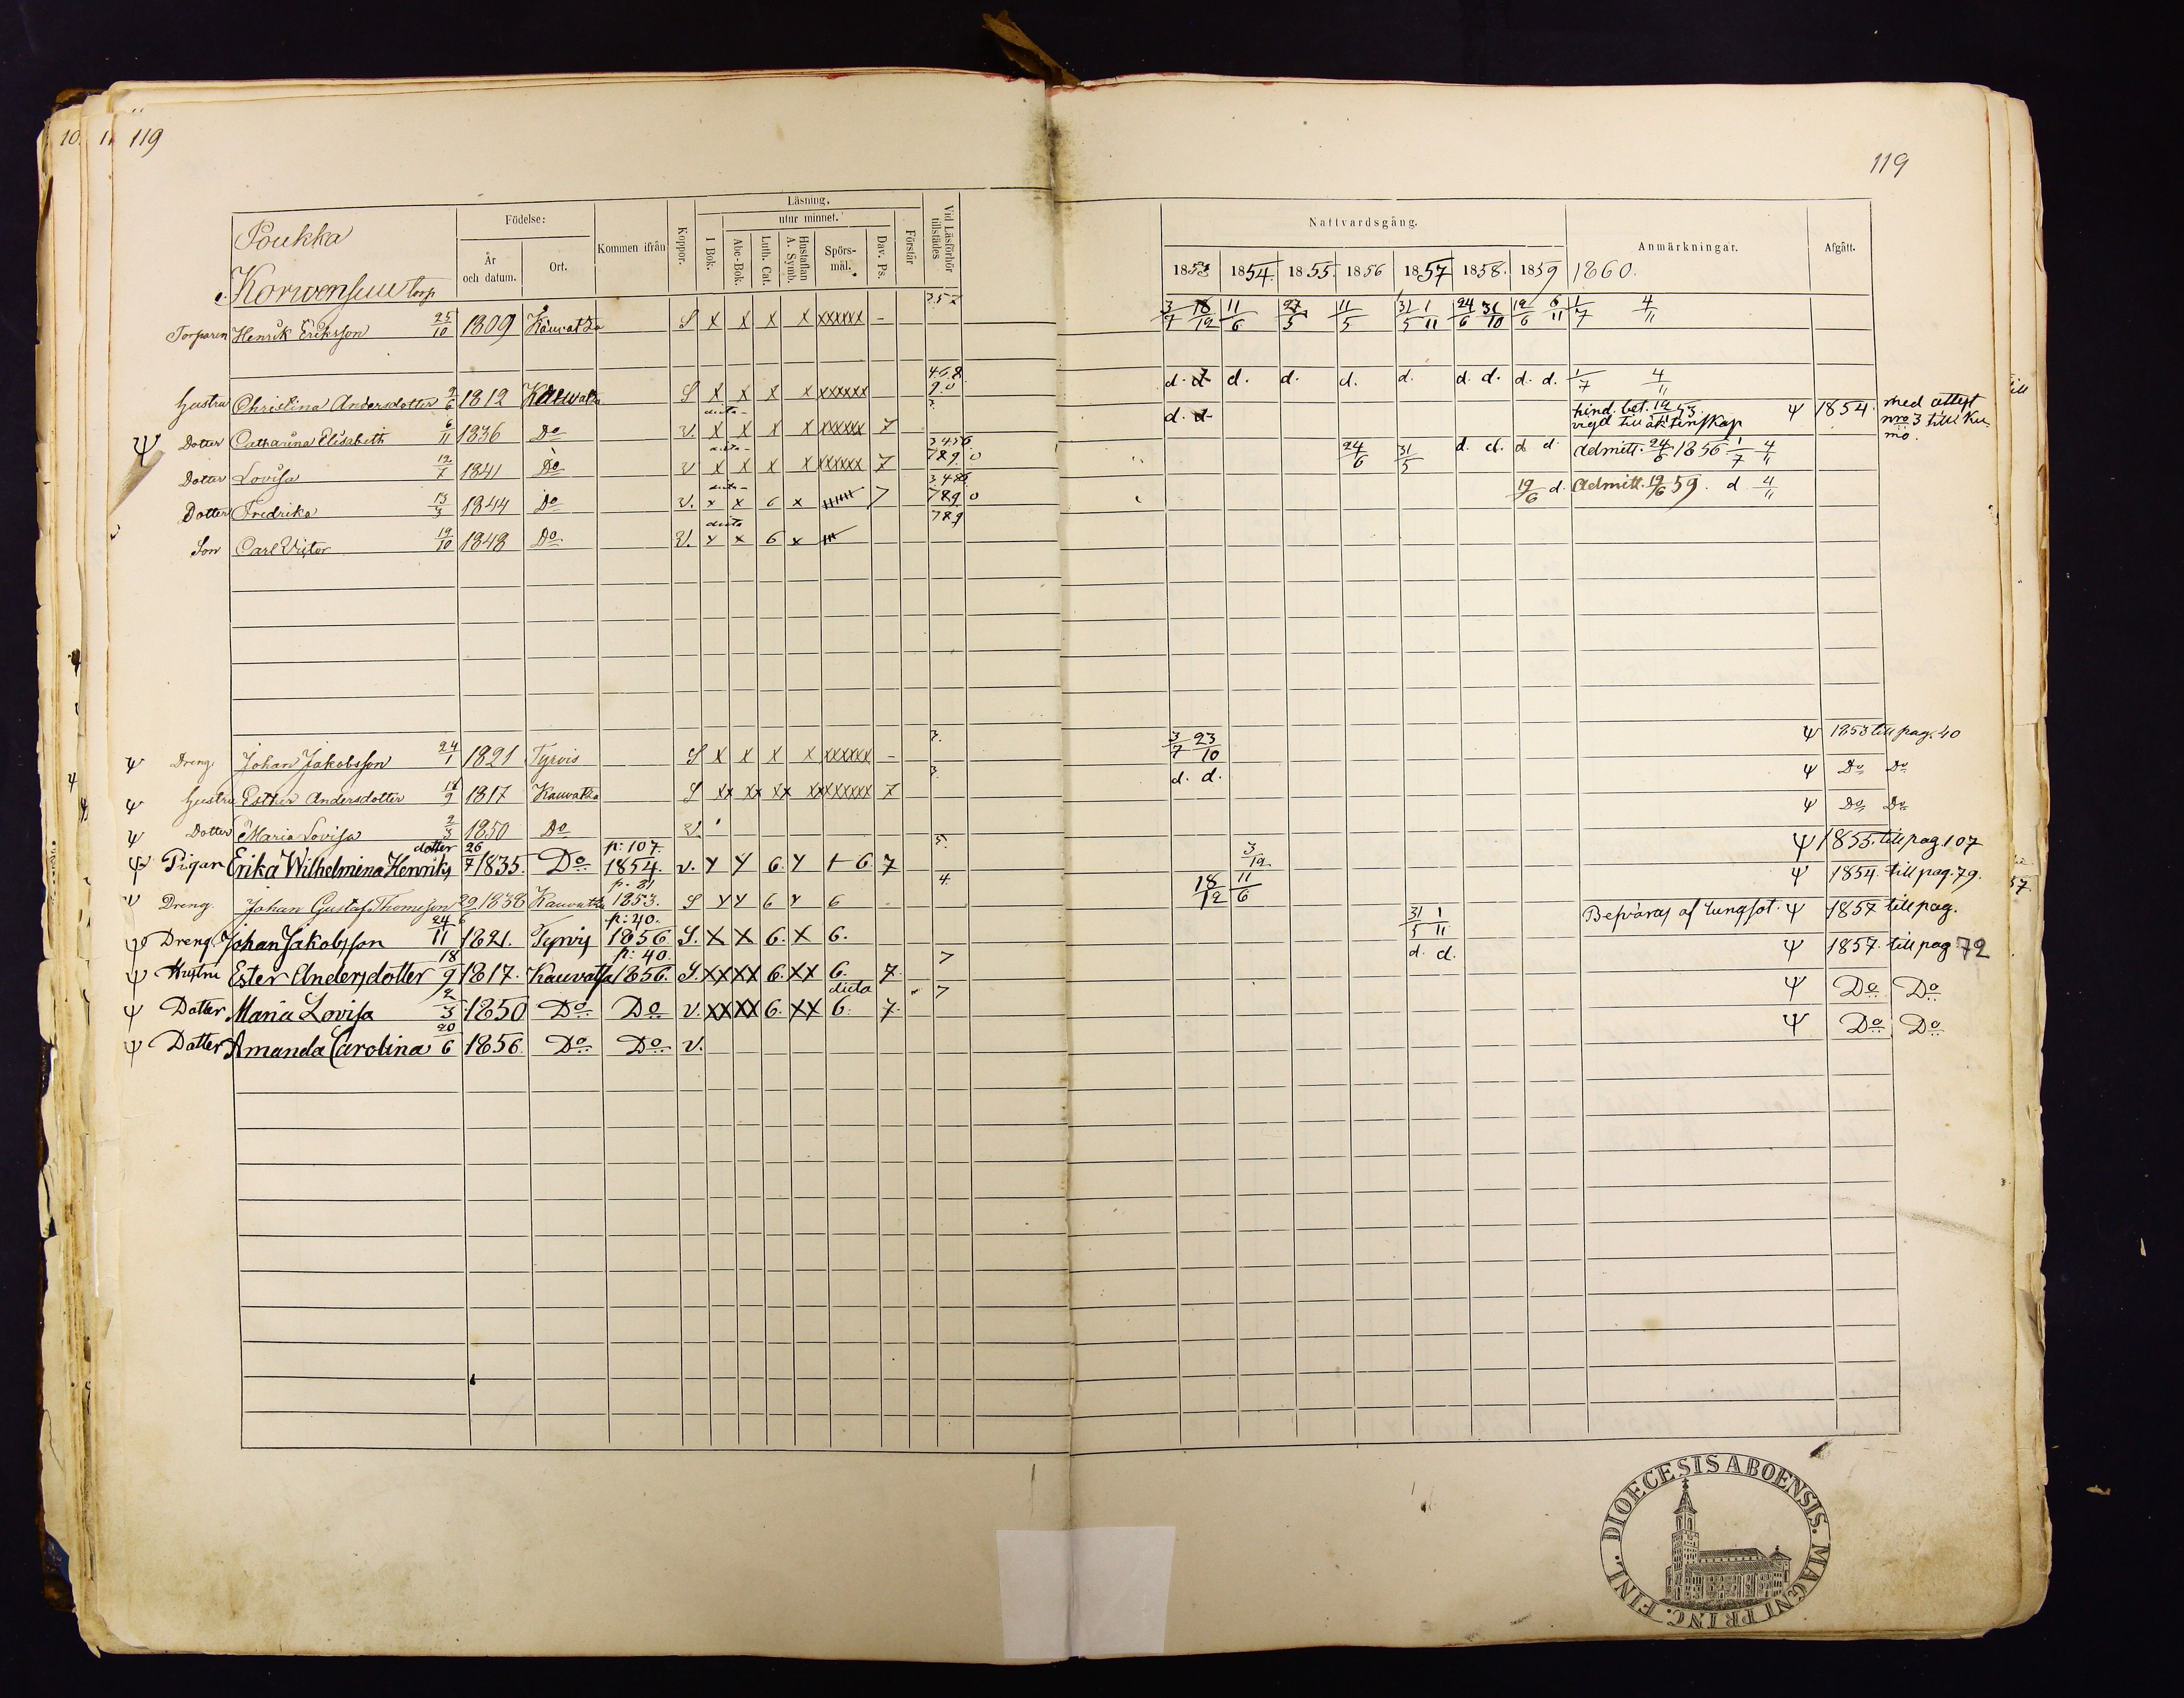 119
119
Läsning,
utur minnet.
Födelse:
År och datum.
Ort.
Kommen ifrån
Koppor.
I Bok.
Abc-Bok.
Luth. Cat.
Hustaflan A. Symb.
Spörsmål.
Dav. Ps.
Förstår
Vid Läsförhör tillstädes
Nattvardsgång.
1853 1854. 1855. 1856 1857 1858. 1859 1860.
Anmärkningar.
Afgått.
Korwensuu torp
Torparen Henrik Eriksson 25/10 1809 Kauvatsa S x x x x xxxxxx - 3/7 18/12 11/6 27/5 11/5 31/5 1/11 24/6 31/10 19/6 6/11 1/7 4/11
Hustru Christina Andersdotter 9/6 1812 Kauvatsa S x x x x xxxxxx d. d. d. d. d. d. d. d. d. 1/7 4/11
Ψ Dotter Catharina Elisabeth 6/11 1836 Do v. x x x x xxxxxx 7 3. d. d. hind. bet. 12/3 53. vigd till äktenskap Ψ 1854. med attest nro 3 till Kumo.
Dotter Lovisa 1841 Do v x x x x xxxxxx 7 3456 789 0 24/6 31/5 d. d. d. d. Admitt. 24/6 1856 1/7 4/11
Dotter Fredrika 1844 Do v. x x 6 x 7 3.456 789 0 19/6 d. Admitt. 19/6 59. d 4/11
Son Carl Victor 19/10 1848 Do v. x x 6 x 789
Ψ Dreng. Johan Jakobsson 24/1 1821 Tyrvis S x x x x xxxxxx - 3. 3/7 23/10 Ψ 1853 till pag. 40
Ψ Hustru Esther Andersdotter 18/9 1817 Kauvatsa S xx xx xx xx xxxxxx 7 3. d. d. Ψ Do Do
Ψ Dotter Maria Lovisa 2/3 1850 Do v. Ψ Do Do
Ψ Pigan Erika Wilhelmina Henriks dotter 26/7 1835. Do p: 107. 1854. v. x x 6. x + 6. 7 5. 3/12 Ψ 1855. till pag. 107
Ψ Dreng. Johan Gustaf Thomasson 29/6 1838 Kauvatsa p. 81 1853. S x x 6 x 6 4. 18/12 11/6 Ψ 1854. till pag. 79.
Ψ Dreng Johan Jakobsson 24/11 1821. Tyrvis p: 40. 1856 S. x x 6. x 6. 31/5 1/11 Besväras af lungsot. Ψ 1857 till pag.
Ψ Hustru Ester Andersdotter 18/9 1817. Kauvatsa p: 40. 1856. S. xx xx 6. xx 6. 7. 7 d. d. Ψ 1857. till pag 72
Ψ Dotter Maria Lovisa 2/3 1850 Do Do v. xx xx 6. xx 6. 7. 7 Ψ Do Do
Ψ Dotter Amanda Carolina 20/6 1856. Do Do v. Ψ Do Do
DIOECESIS ABOENSIS. MAGNI PRINC. FINL.